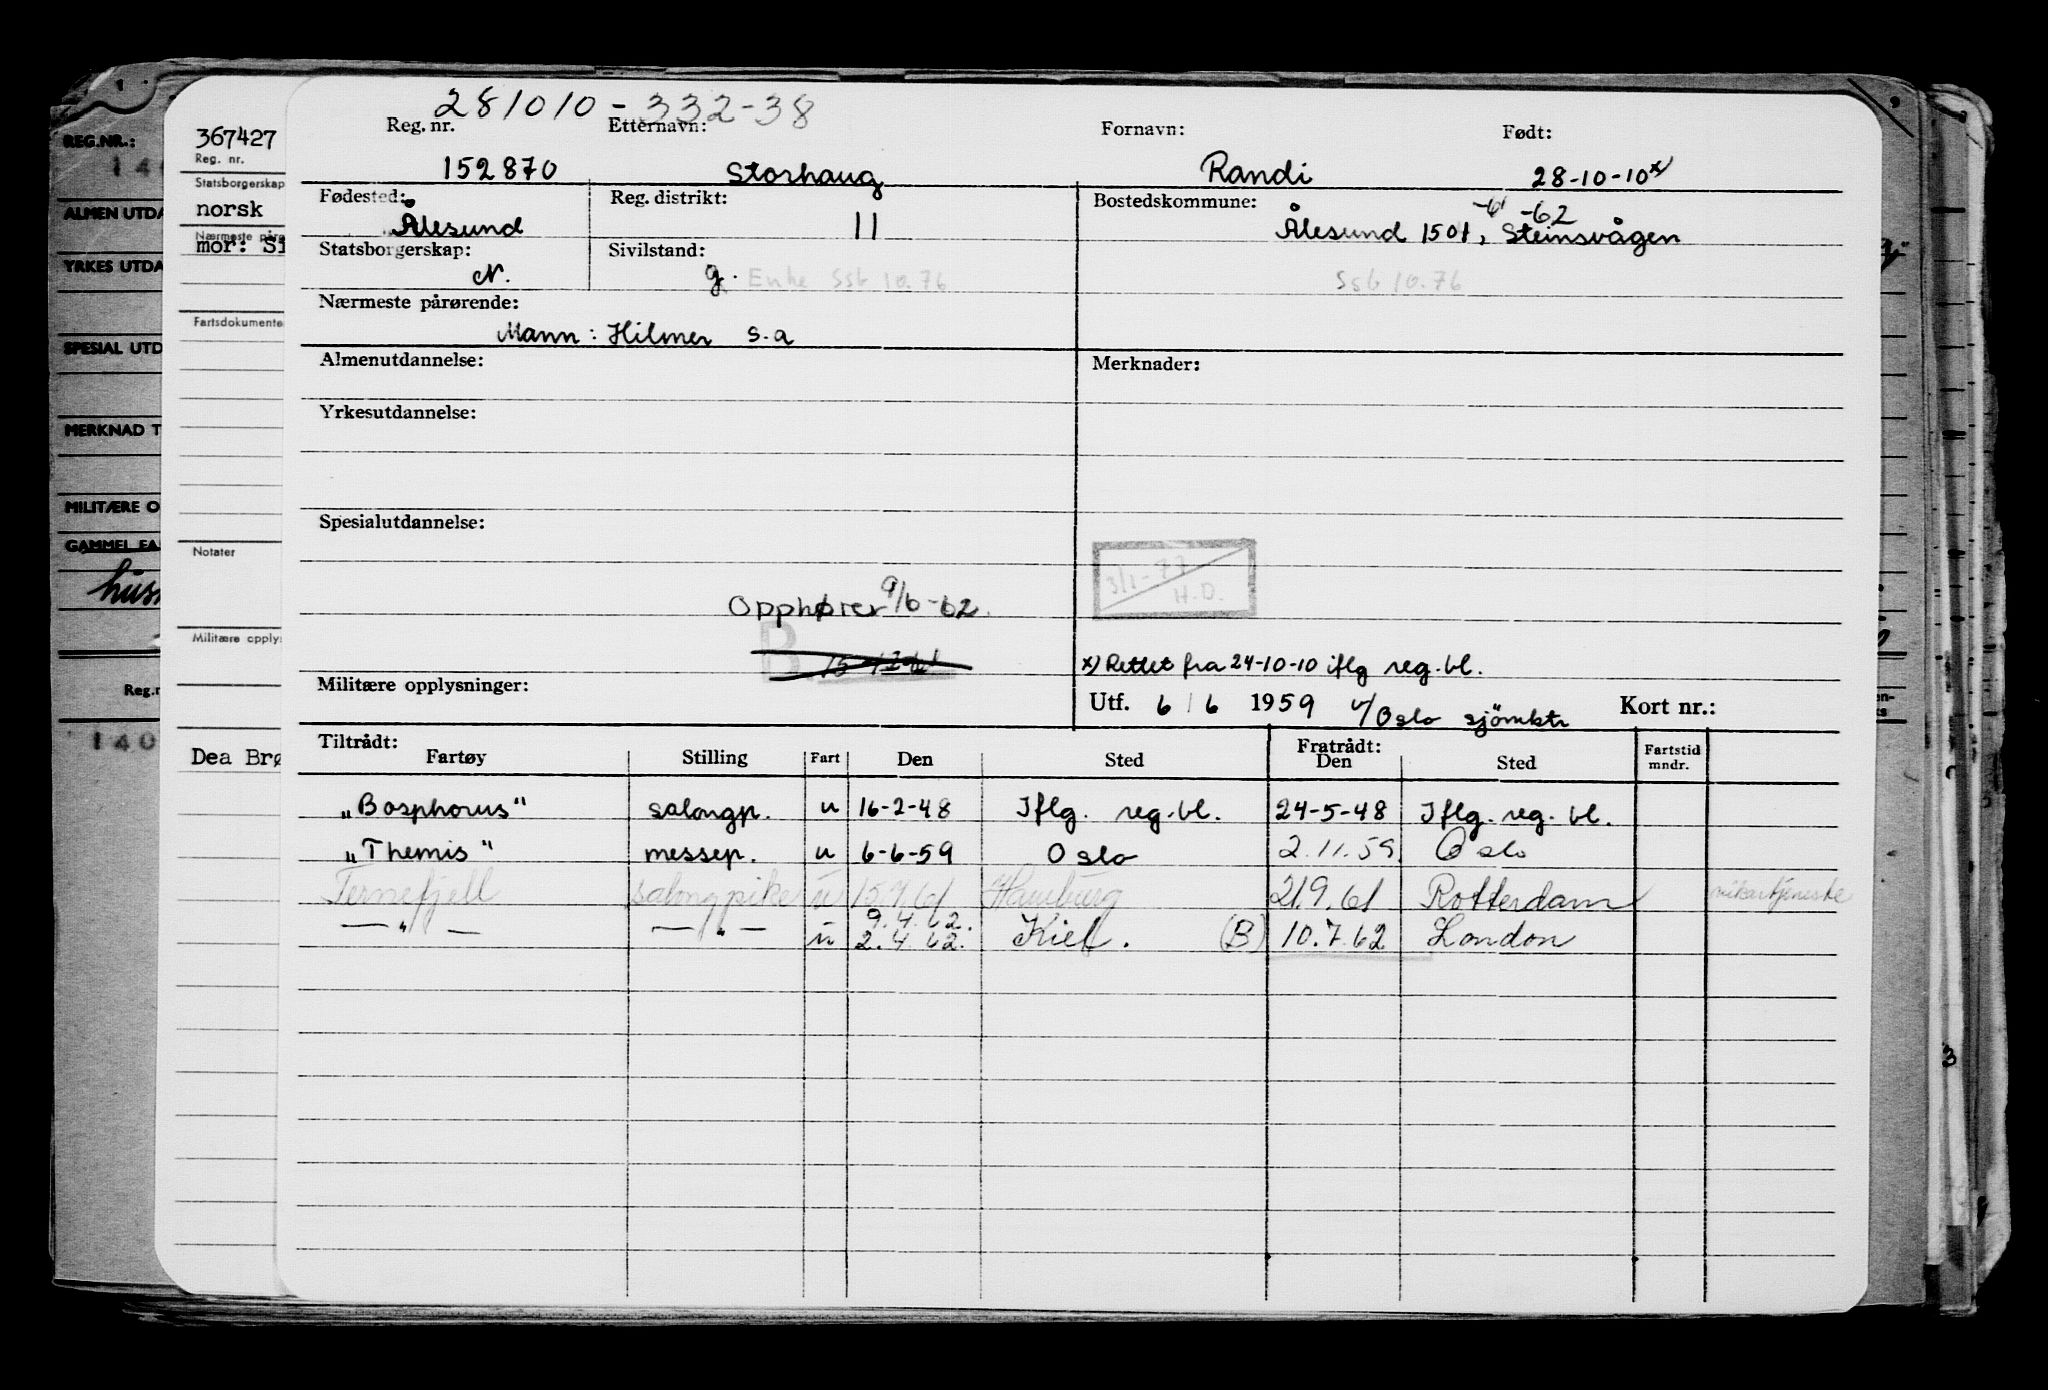 281010-332-38
Reg. nr. Etternavn: Fornavn: Født:
152870 Storhaug Randi 28-10-10x)
Fødested: Reg. distrikt: Bostedskommune:
Ålesund 11 Ålesund 1501, -61 Steinsvågen -62
Statsborgerskap: Sivilstand:
N. g. Enke SSB 10.76 SSB 10.76
Nærmeste pårørende:
Mann: Hilmer s.a
Almenutdannelse: Merknader:
Yrkesutdannelse:
Spesialutdannelse:
3/1-77
H.D.
Opphører 9/6-62.
B
x) Rettet fra 24-10-10 iflg reg.bl.
Militære opplysninger: Utf. 6/6 1959 v/Oslo sjömktr Kort nr.:
Tiltrådt: Fratrådt:
Fartøy Stilling Fart Den Sted Den Sted Fartstid mndr.
"Bosphorus" salongp. u 16-2-48 Iflg. reg.bl. 24-5-48 Iflg. reg. bl.
"Themis" messep. u 6-6-59 Oslo 2.11.59 Oslo
Ternefjell salongpike u 15.7.61 Hamburg 21.9.61 Rotterdam vikartjeneste
— " — — " — 9.4.62.
u 2.4.62. Kiel. (B) 10.7.62 London
367427
Reg. nr.
Statsborgerskap
norsk
Nærmeste påre
mor: Si
Fartsdokumente
Notater
Militære opply
Dea Brø
REG.NR.:
140
ALMEN UTDA
YRKES UTDA
SPESIAL UTD
MERKNAD T
MILITÆRE O
GAMMEL FA
hus
Reg.n
140